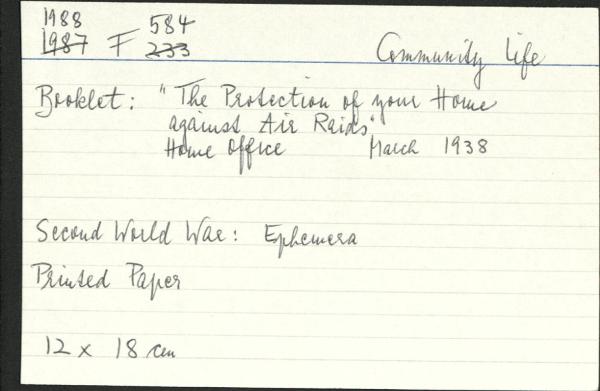 1988 584
1987 F 233
Community Life
Booklet: "The Protection of your Home
against Air Raids"
Home Office March 1938
Second World War: Ephemera
Printed Paper
12 x 18 cm